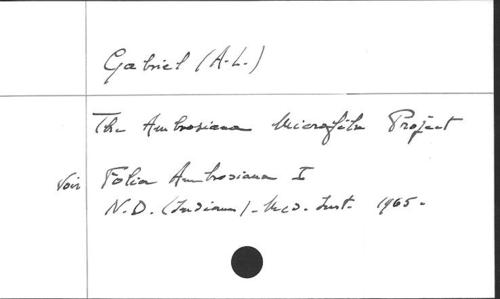 Gabriel (A.L.)
The Ambrosiana Microfilm Project
Voir Folia Ambrosiana I
N.D. (Indiana) - Med. Inst. 1965.